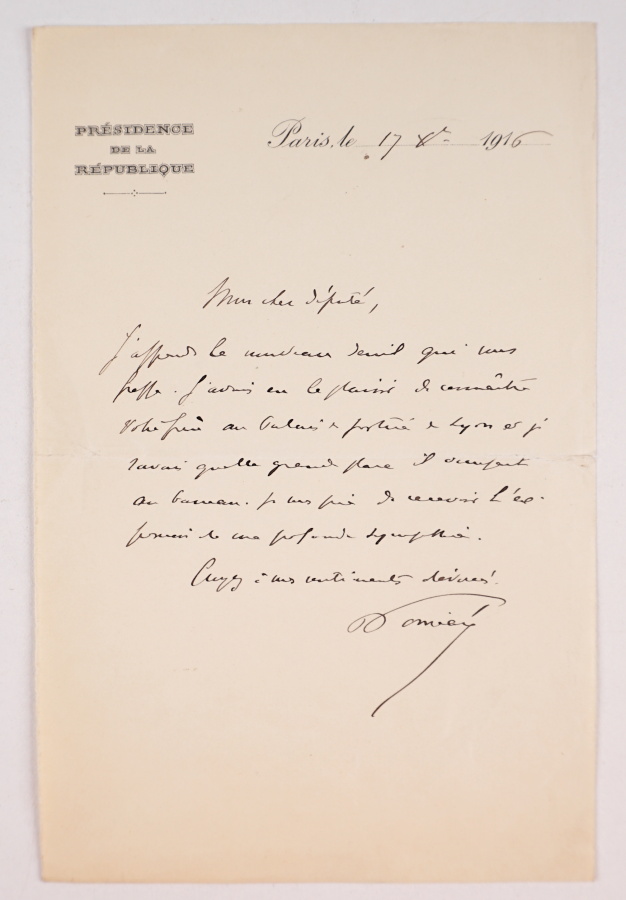 PRÉSIDENCE
DE LA
RÉPUBLIQUE
Paris, le 17 Xbre 1916
Mon cher député,
J'apprends le nouveau deuil qui vous
frappe. J'avais eu le plaisir de connaître
votre frère au Palais de justice de Lyon et je
savais quelle grande place il occupait
au barreau. Je vous prie de recevoir l'ex-
pression de ma profonde sympathie.
Croyez à mes sentiments dévoués.